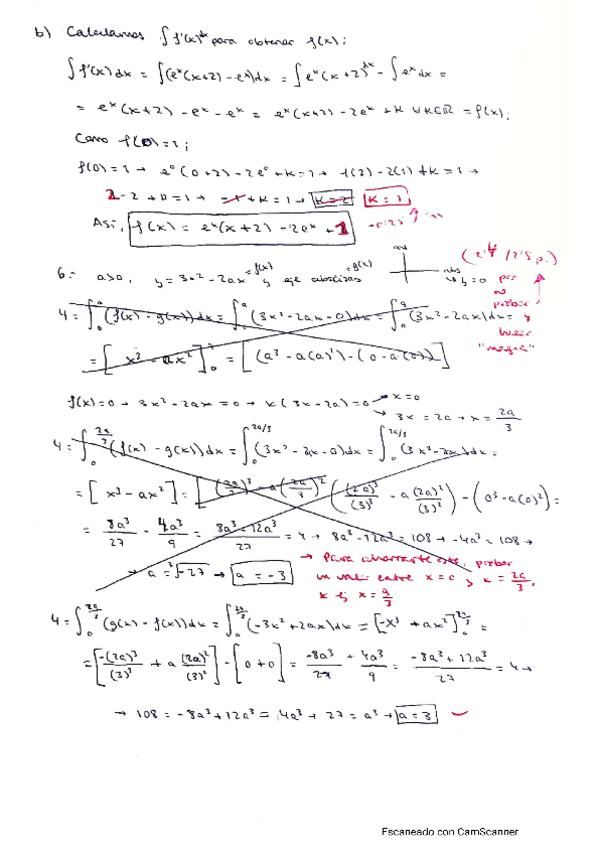 b) Calculamos ∫f'(x)dx para obtener f(x):
∫f'(x)dx = ∫(eˣ(x+2) - eˣ)dx = ∫eˣ(x+2)dx - ∫eˣdx =
= eˣ(x+2) - eˣ - eˣ = eˣ(x+2) - 2eˣ + K ∀K∈ℝ = f(x);
Como f(0)=1;
f(0)=1 → e⁰(0+2) - 2e⁰ + K = 1 → 1(2) - 2(1) + K = 1 →
2 - 2 + K = 1 → -1 + K = 1 → K=2 K=1
Así, f(x) = eˣ(x+2) - 2eˣ + 1
(2'4/2'5 p.)
6.- a>0, y=3x²-2ax =f(x) y eje abscisas =g(x)
y=0
por no probar y hacer "magia"
4 = ∫₀ᵃ (f(x) - g(x))dx = ∫₀ᵃ (3x² - 2ax - 0)dx = ∫₀ᵃ (3x² - 2ax)dx =
= [x³ - ax²]₀ᵃ = [(a³ - a(a)²) - (0 - a(0))]
f(x)=0 → 3x² - 2ax = 0 → x(3x - 2a) = 0 → x=0
→ 3x = 2a → x = 2a/3
4 = ∫₀^(2a/3) (f(x) - g(x))dx = ∫₀^(2a/3) (3x² - 2ax - 0)dx = ∫₀^(2a/3) (3x² - 2ax)dx =
= [x³ - ax²] = ((2a)³/(3)³ - a(2a)²/(3)²) - (0³ - a(0)²) =
= 8a³/27 - 4a³/9 = 8a³ - 12a³/27 = 4 → 8a³ - 12a³ = 108 → -4a³ = 108 →
→ a = ³√-27 → a = -3
→ Para ahorrarte este, probar
un valor entre x=0 y x=2a/3,
x ej x=a/3
4 = ∫₀^(2a/3) (g(x) - f(x))dx = ∫₀^(2a/3) (-3x² + 2ax)dx = [-x³ + ax²]₀^(2a/3) =
= [-(2a)³/(3)³ + a(2a)²/(3)²] - [0+0] = -8a³/27 + 4a³/9 = -8a³ + 12a³/27 = 4 →
→ 108 = -8a³ + 12a³ = 4a³ → 27 = a³ → a=3
Escaneado con CamScanner